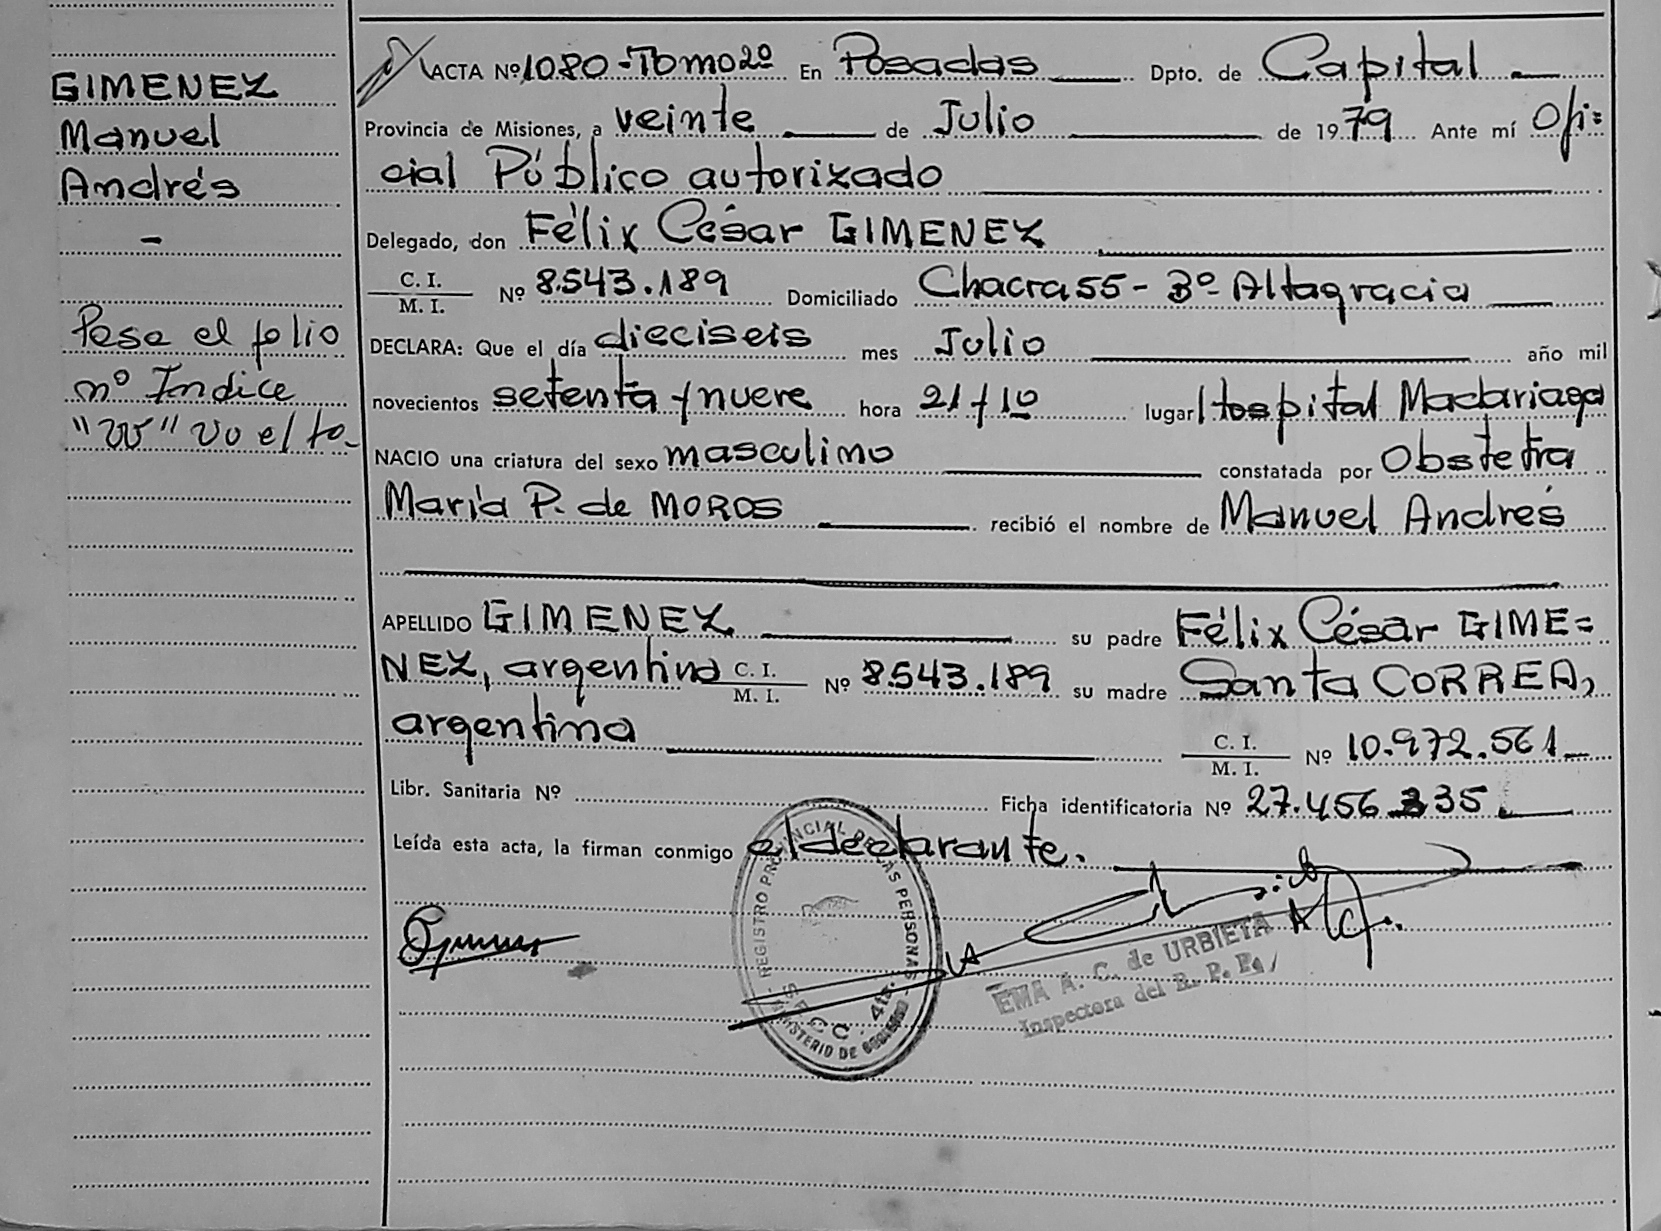 GIMENEZ
Manuel
Andrés
-
Pase el folio
nº Indice
vuelto
ACTA Nº 1080 - Tomo 2º En Posadas Dpto. de Capital
Provincia de Misiones, a veinte de Julio de 1979 Ante mí Ofi=
cial Público autorizado
Delegado, don Félix César GIMENEZ
C. I.
M. I. Nº 8.543.189 Domiciliado Chacra 55 - Bº Altagracia
DECLARA: Que el día dieciseis mes Julio año mil
novecientos setenta y nueve hora 21 y 10 lugar Hospital Madariaga
NACIO una criatura del sexo masculino constatada por Obstetra
María P. de MOROS recibió el nombre de Manuel Andrés
APELLIDO GIMENEZ su padre Félix César GIME=
NEZ, argentino C. I.
M. I. Nº 8.543.189 su madre Santa CORREA,
argentina C. I.
M. I. Nº 10.972.561
Libr. Sanitaria Nº Ficha identificatoria Nº 27.456.335
Leída esta acta, la firman conmigo el declarante.
REGISTRO PROVINCIAL DE LAS PERSONAS
MINISTERIO DE
EMA A. C. de URBIETA
Inspectora del R. P. P.